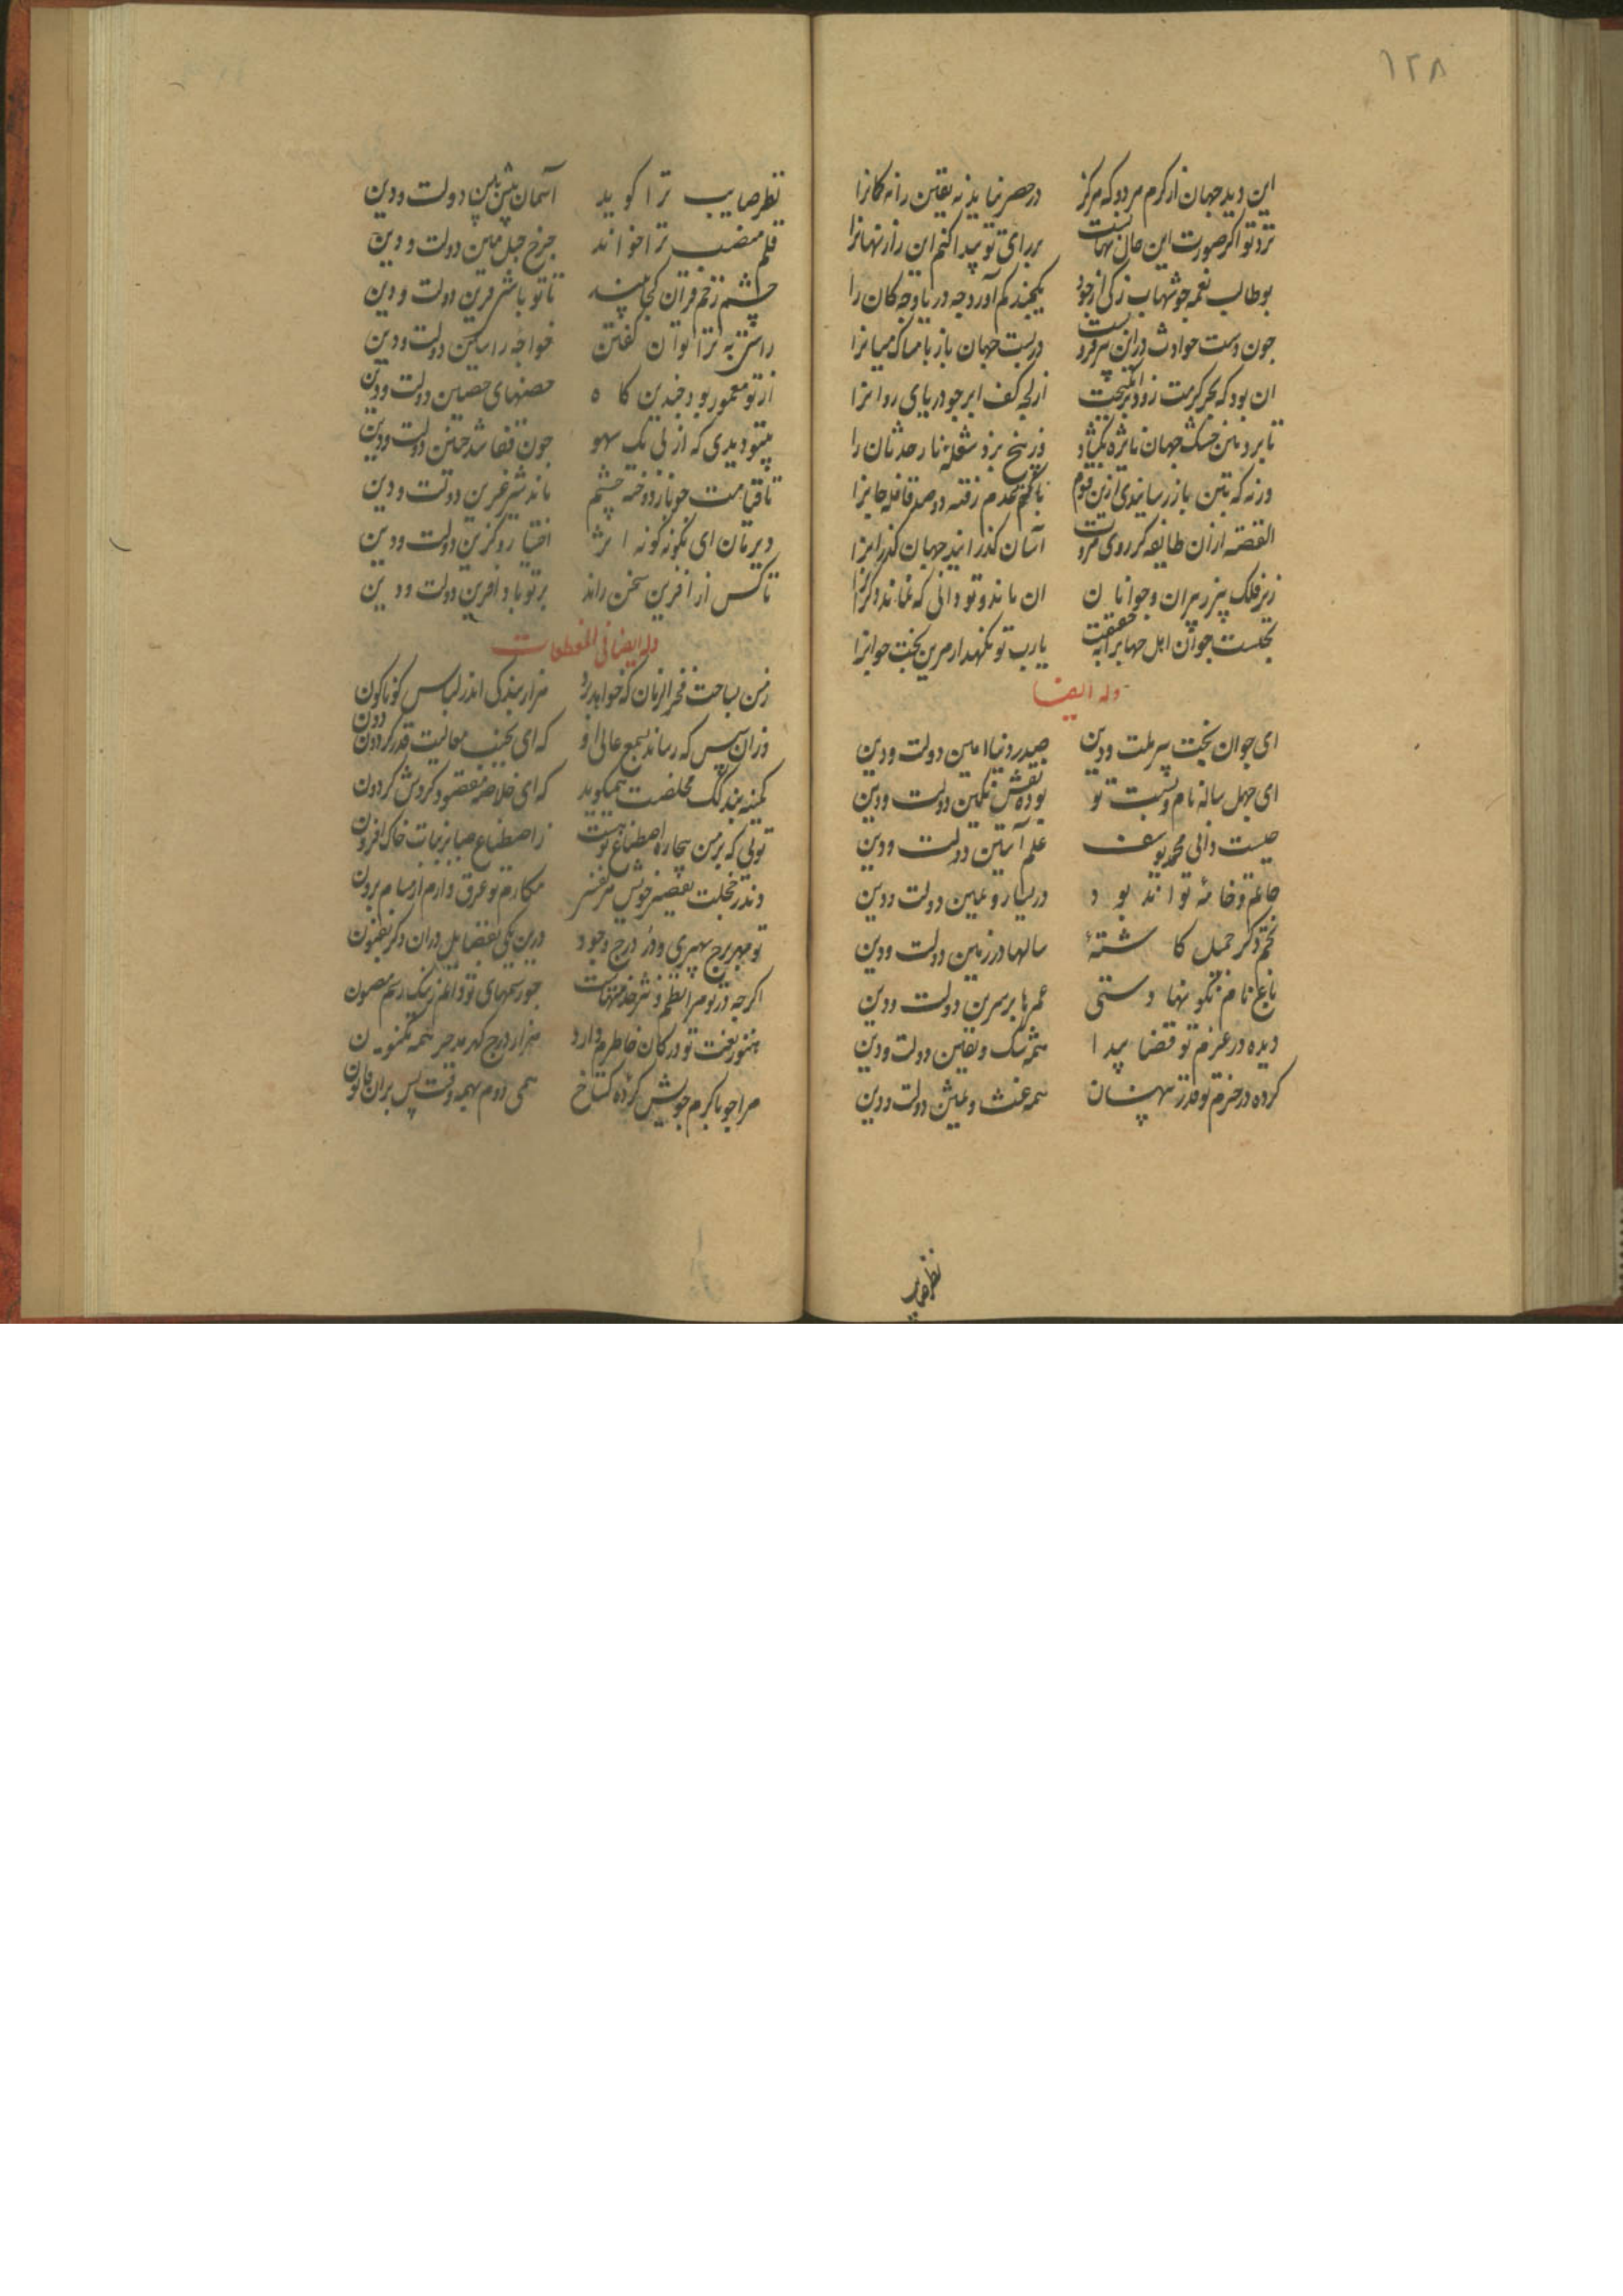 ۱۲۸
این دید جهان از کرم مرد و که مرکز در حصر نیاید نه یقین را نه کمانرا
نزد تو اکر صورت این حال نهانست بر رای تو پیدا کنم این راز نهانرا
بوطالب نعمه جو شهاب زکی از جود یکچند کم آورد جه دریا و جه کان را
جون دست حوادث در این هر دو فرو بست در بست جهان باز بامساک میانرا
ان بود که بحر کرمت زود برانکیخت از لجه کف ابر جو دریای روانرا
تا بر دهن خشک جهان نائژه بکشاد وز بیخ بزد شعله نار حدثان را
ورنه که بتن باز رسانیدی ازین قوم با کتم عدم رفته دو صد قافله جانرا
القصه از ان طایفه کز روی مروت آسان کذرانند جهان کذرانرا
زیر فلک پیر ز پیران و جوانان ان ماند و تو دانی که نماند دکرانرا
بختست جوان اهل جهانرا بحقیقت یارب تو نکهدار مر این بخت جوانرا
وله ایضا
ای جوان بخت پیر ملت و دین صدر دنیا امین دولت و دین
ای چهل ساله نام و نسبت تو بوده نقش نکین دولت و دین
چیست دانی محمد یوسف علم آستین دولت و دین
خاتم و خامه تواند بود در یسار و یمین دولت و دین
تخم ذکر جمیل کاشته سالها در زمین دولت و دین
باغ نام نکو نهادستی عمرها بر سرین دولت و دین
دیده در عزم تو قضا پیدا همه شک و یقین دولت و دین
کرده در حزم تو قدر پنهان همه غث و سمین دولت و دین
نظر صایب
نظر صایب ترا کوید آسمان پیش بین دولت و دین
قلم منصب ترا خواند جرخ حبل متین دولت و دین
چشم زخم قران کجا بیند تا تو باشی قرین دولت و دین
راستی به ترا توان کفتن خواجه راستین دولت و دین
از تو معمور بود چندین کاه حصنهای حصین دولت و دین
بیتو دیدی که از پی یک سهو جون قفا شد جبین دولت و دین
تا قیامت جو باز دوخته چشم ماند شیر عرین دولت و دین
دیرمان ای نکونه کونه اثر اختیار و کزین دولت و دین
تا کس از آفرین سخن راند بر تو باد آفرین دولت و دین
وله ایضا فی المقطعات
ز من بساحت فخر الزمان که خواهد برد هزار بندکی اندر لباس کوناکون
وزان سپس که رساند بسمع عالی او که ای بجنب معالیت قدر کردون دون
کمینه بندکک مخلصت همیکوید که ای خلاصه مقصود کردش کردون
تویی که بر من بیچاره اصطناع تو هست ز اصطناع صبا بر نبات خاک افزون
وندر خجلت تقصیر خویش مکارم تو عرق وارم از مسام برون
تو مهر برج سپهری و در درج وجود درین یکی بفضایل دران دکر بفنون
اکرجه در تو مرا نظم و نثر خدمتهاست جو رسمهای تو دایم ز ننک رسم مصون
هنوز نعت تو در کان خاطرم دارد هزار درج کهر همه مکنون
مرا جو با کرم خویش کرده کستاخ همی دوم بهمه وقت پس بران قانون